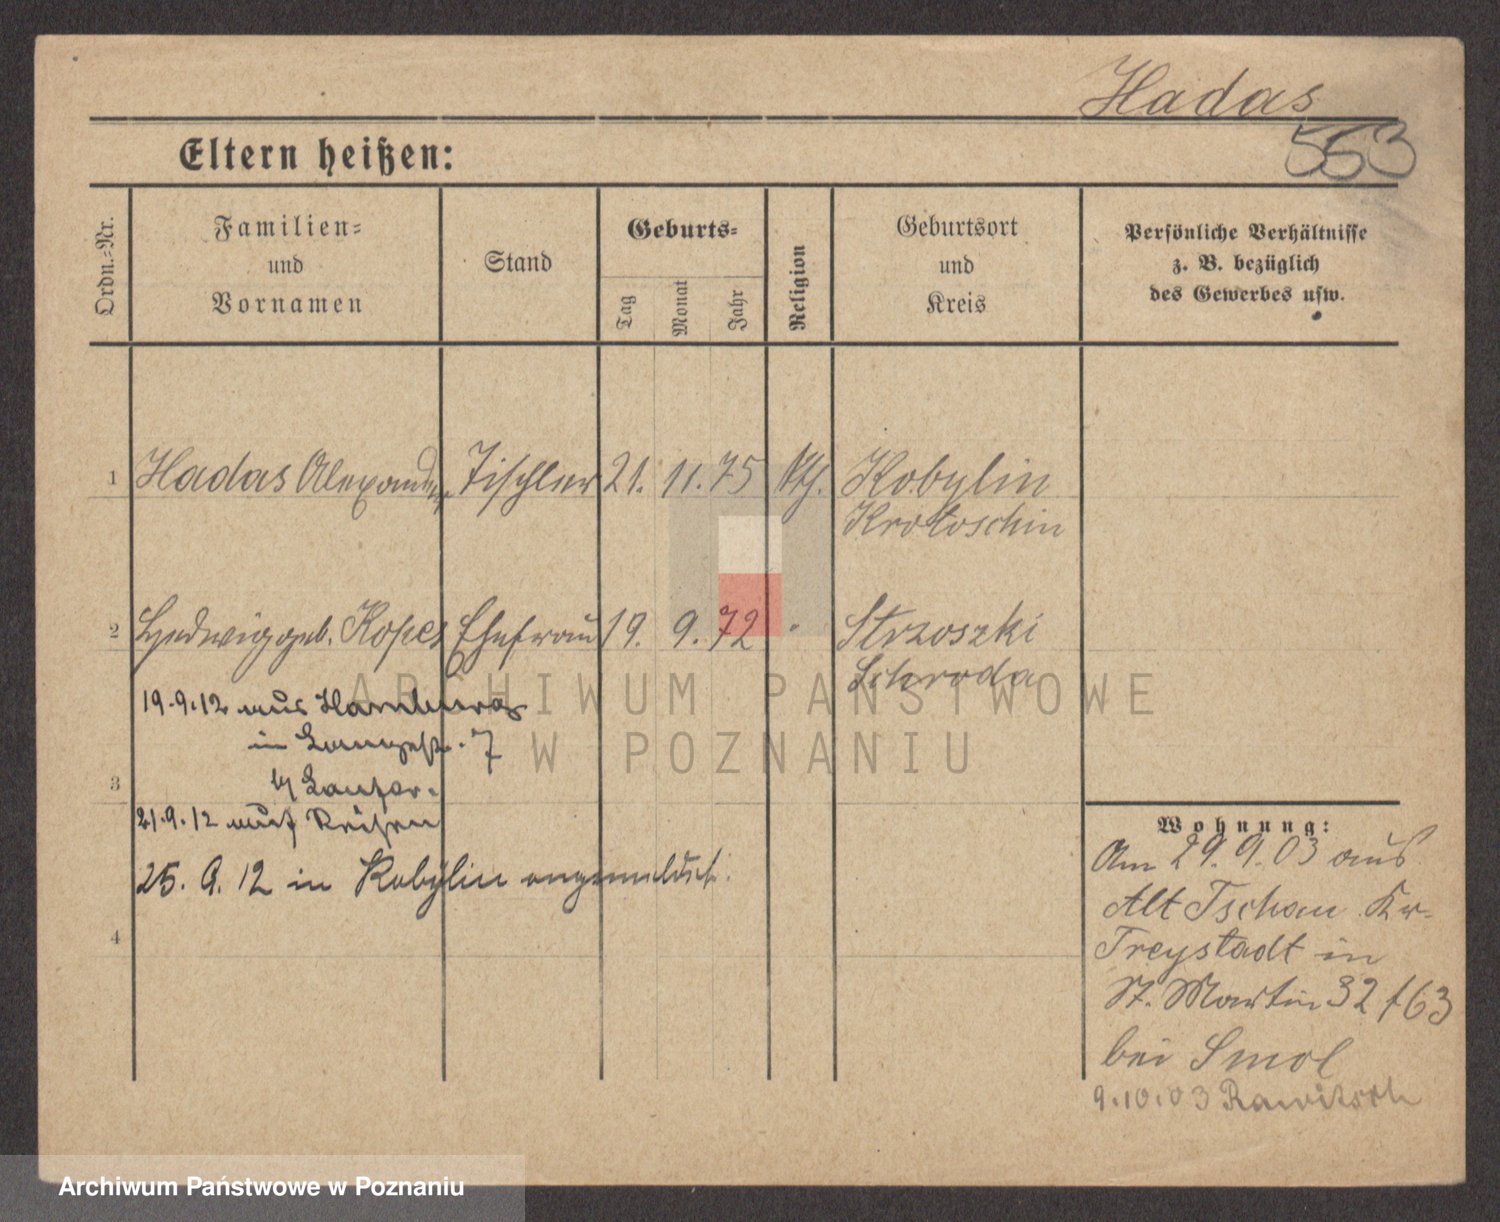 Hadas
553
Eltern heißen:
Ordn.-Nr.
Familien-
und
Vornamen
Stand
Geburts-
Tag
Monat
Jahr
Religion
Geburtsort
und
Kreis
Persönliche Verhältnisse
z. B. bezüglich
des Gewerbes usw.
1 Hadas Alexander Tischler 21. 11. 75 kth. Kobylin
Krotoschin
2 Hedwig geb. Kopes Ehefrau 19. 9. 72 " Strzoszki
Schroda
19.9.12 aus Hamburg
in Langestr. 7
b/
3
21.9.12 auf Reisen
25. 9. 12 in Kobylin angemeldet.
4
Wohnung:
Am 29. 9. 03 aus
Alt Tschau Kr.
Freystadt in
St. Martin 32 f 63
bei Smol
9.10.03 Rawitsch
ARCHIWUM PAŃSTWOWE
W POZNANIU
Archiwum Państwowe w Poznaniu